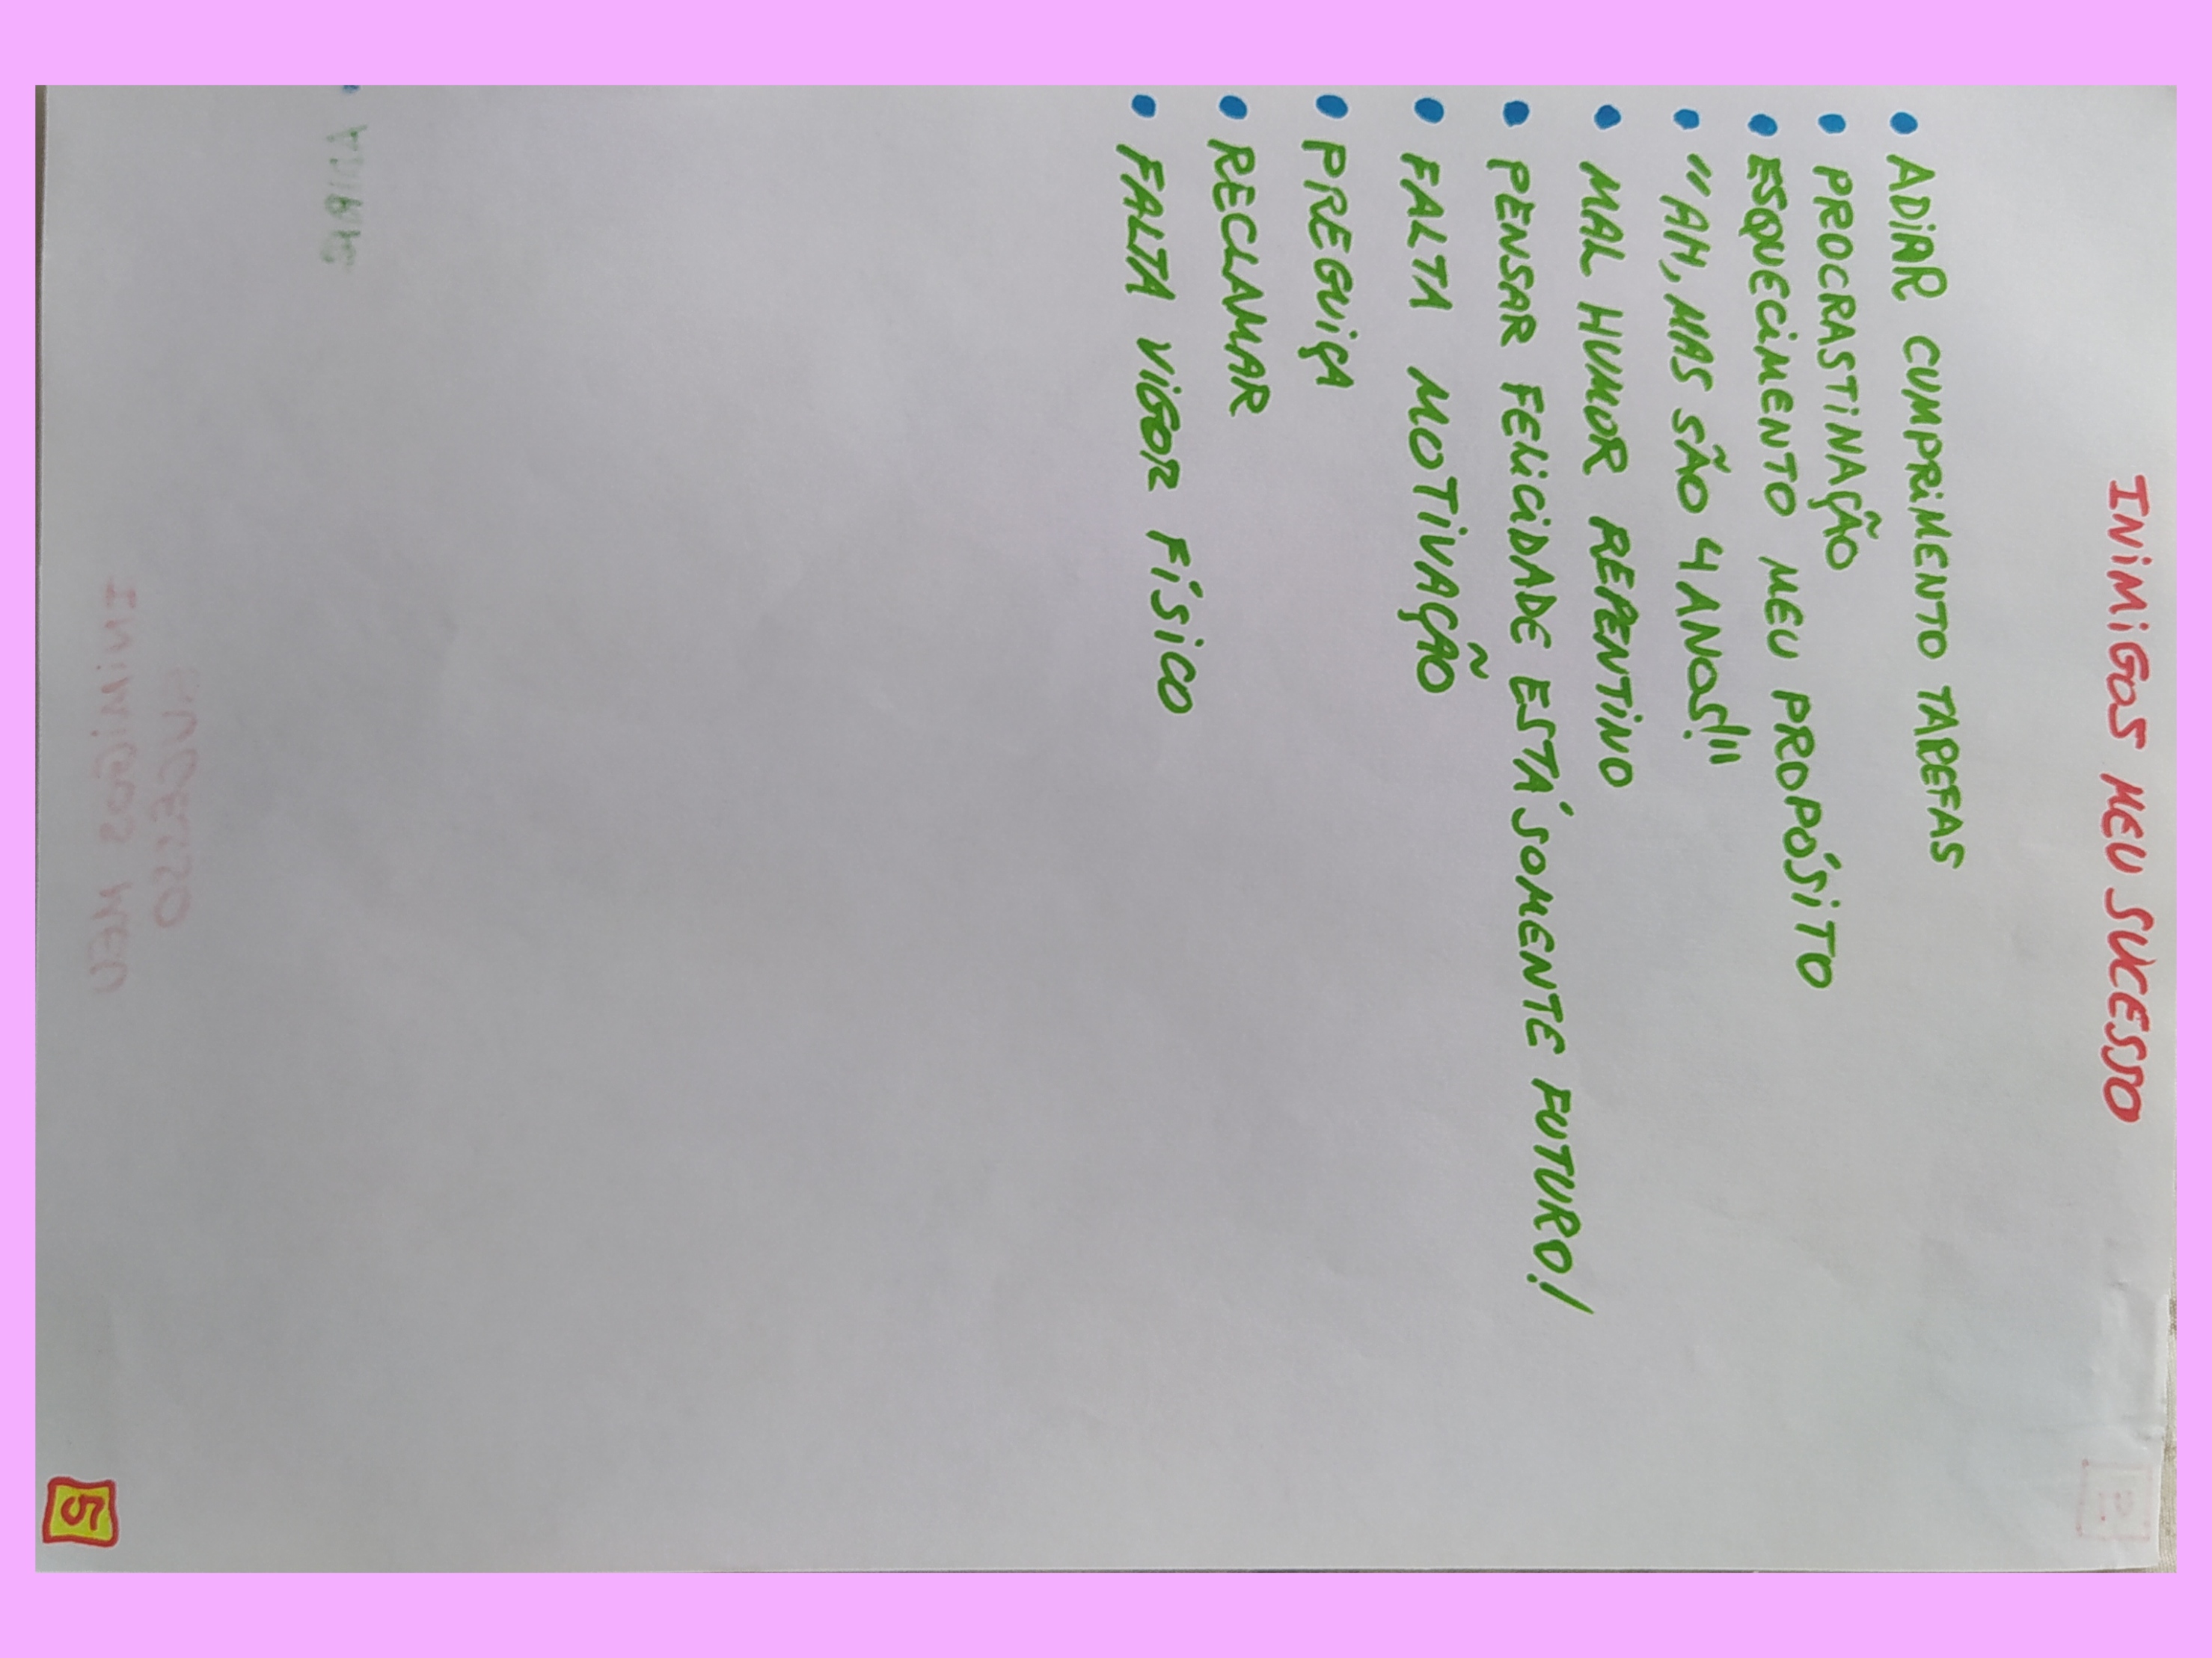 INIMIGOS MEU SUCESSO
• ADIAR CUMPRIMENTO TAREFAS
• PROCRASTINAÇÃO
• ESQUECIMENTO MEU PROPÓSITO
• "AH, MAS SÃO 4 ANOS!"
• MAL HUMOR REPENTINO
• PENSAR FELICIDADE ESTÁ SOMENTE FUTURO!
• FALTA MOTIVAÇÃO
• PREGUIÇA
• RECLAMAR
• FALTA VIGOR FÍSICO
ADIAR
SUCESSO
INIMIGOS MEU
5